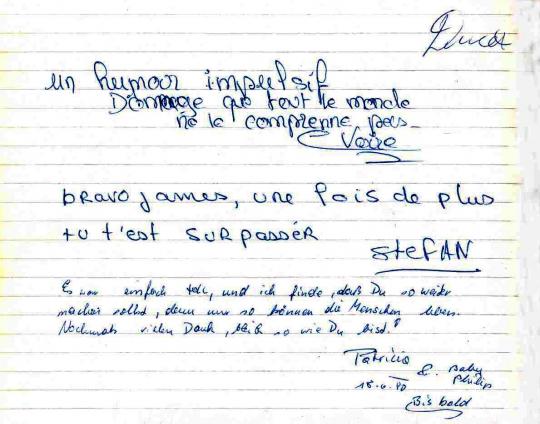 un humour impulsif
Dommage que tout le monde
ne le comprenne pas
bravo james, une fois de plus
tu t'est surpassér
STEFAN
Es war einfach toll, und ich finde, daß Du so weiter
machen sollst, denn nur so können die Menschen leben.
Nochmals vielen Dank, bleib so wie Du bist!
Patricia
& Baby
Philip
18.6.90
Bis bald